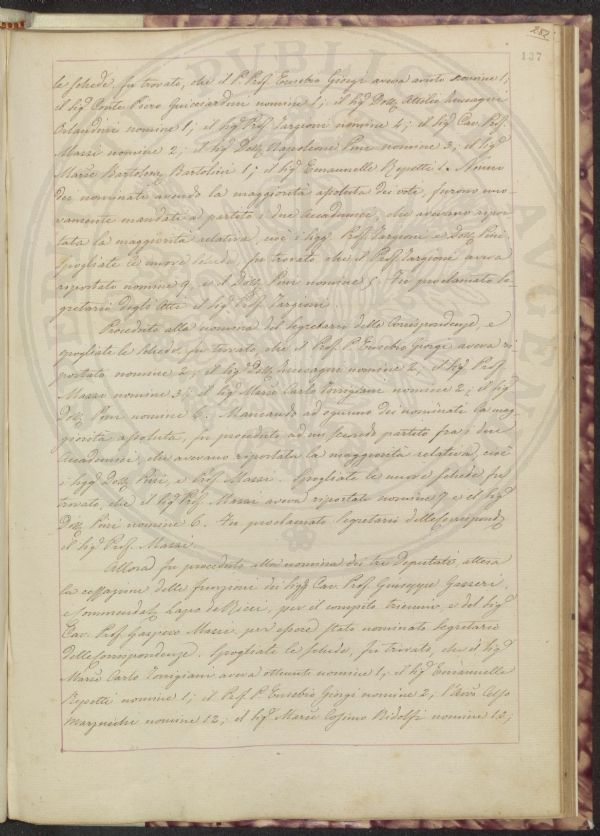 252
137
le schede, fu trovato, che il P. Prof. Eusebio Giorgi aveva avuto nomine 1;
il Sigr Conte Piero Guicciardini nomine 1; il Sigr Dott. Attilio Zuccagni
Orlandini nomine 1; il Sigr Prof. Targioni nomine 4; il Sigr Cav. Prof.
Mazzi nomine 2; il Sigr Dott. Napoleone Pini nomine 3; il Sigr
March. Bartolini Bartolini 1; il Sigr Emanuelle Repetti 1. Niuno
dei nominati avendo la maggiorità assoluta dei voti, furono nuo-
vamente mandati a partito i due Accademici, che avevano ripor-
tata la maggiorità relativa, cioè i Sigg. Prof. Targioni e Dott. Pini.
Spogliate le nuove schede, fu trovato che il Prof. Targioni aveva
riportato nomine 9, e il Dott. Pini nomine 5. Fu proclamato Se-
gretario degli Atti il Sigr Prof. Targioni.
Proceduto alla nomina del Segretario delle Corrispondenze, e
spogliate le schede, fu trovato, che il Prof. P. Eusebio Giorgi aveva ri-
portato nomine; il Sigr Dott. Zuccagni nomine 2; il Sigr Prof.
Mazzi nomine 3; il Sigr March. Carlo Torrigiani nomine 2; il Sigr
Dott. Pini nomine 6. Mancando ad ognuno dei nominati la mag-
giorità assoluta, fu proceduto ad un secondo partito fra i due
Accademici, che avevano riportata la maggiorità relativa, cioè
i Sigg. Dott. Pini, e Prof. Mazzi. Spogliate le nuove schede fu
trovato, che il Sigr Prof. Mazzi aveva riportate nomine 7 e il Sigr
Dott. Pini nomine 6. Fu proclamato Segretario delle Corrispond.
il Sigr Prof. Mazzi.
Allora fu proceduto alla nomina dei tre Deputati, attesa
la cessazione delle funzioni dei Sigg. Cav. Prof. Giuseppe Gazzeri,
e Commendat. Lapo de Ricci, per il compito triennio, e del Sigr
Cav. Prof. Gaspero Mazzi per essere stato nominato Segretario
delle Corrispondenze. Spogliate le schede, fu trovato, che il Sigr
March. Carlo Torrigiani aveva ottenute nomine 1; il Sigr Emanuelle
Repetti nomine 1; il Prof. P. Eusebio Giorgi nomine 2; l'Avv. Celso
Marzucchi nomine 12; il Sigr March. Cosimo Ridolfi nomine 12;